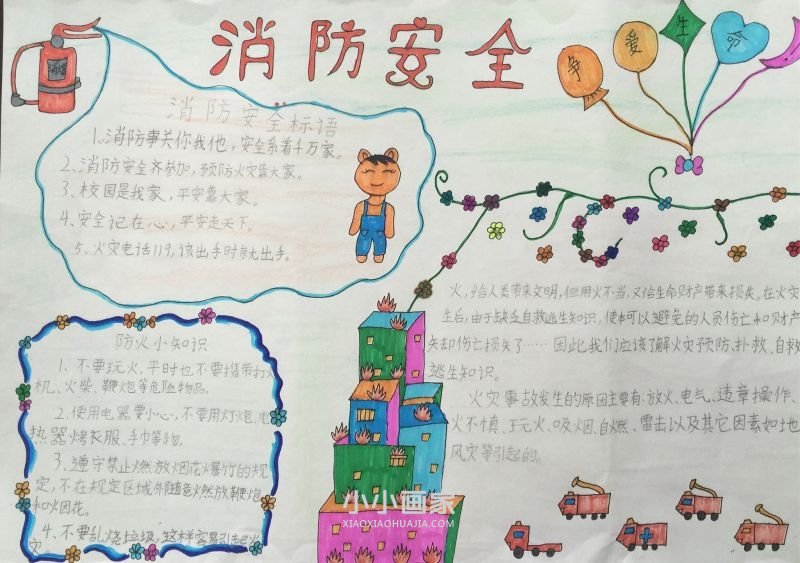 消防安全
争
爱
生
命
消防安全标语
1、消防事关你我他，安全系着千万家。
2、消防安全齐参加，预防火灾靠大家。
3、校园是我家，平安靠大家。
4、安全记在心，平安走天下。
5、火灾电话119，该出手时就出手。
防火小知识
1、不要玩火，平时也不要携带打火
机、火柴、鞭炮等危险物品。
2、使用电器要小心，不要用灯炮、电
热器烤衣服、手巾等物。
3、遵守禁止燃放烟花火暴竹的规
定，不在规定区域外随意燃放鞭炮
和烟花。
4、不要乱烧垃圾，这样容易引起火
灾。
火，给人类带来文明，但用火不当，又给生命财产带来损失。在火灾
生后，由于缺乏自救逃生知识，使本可以避免的人员伤亡和财产
失却伤亡损失了……因此我们应该了解火灾预防、扑救、自救
逃生知识。
火灾事故发生的原因主要有：放火、电气、违章操作、
火不慎、玩火、吸烟、自燃、雷击以及其它因素如地
风灾等引起的。
小小画家
XIAOXIAOHUAJIA.COM